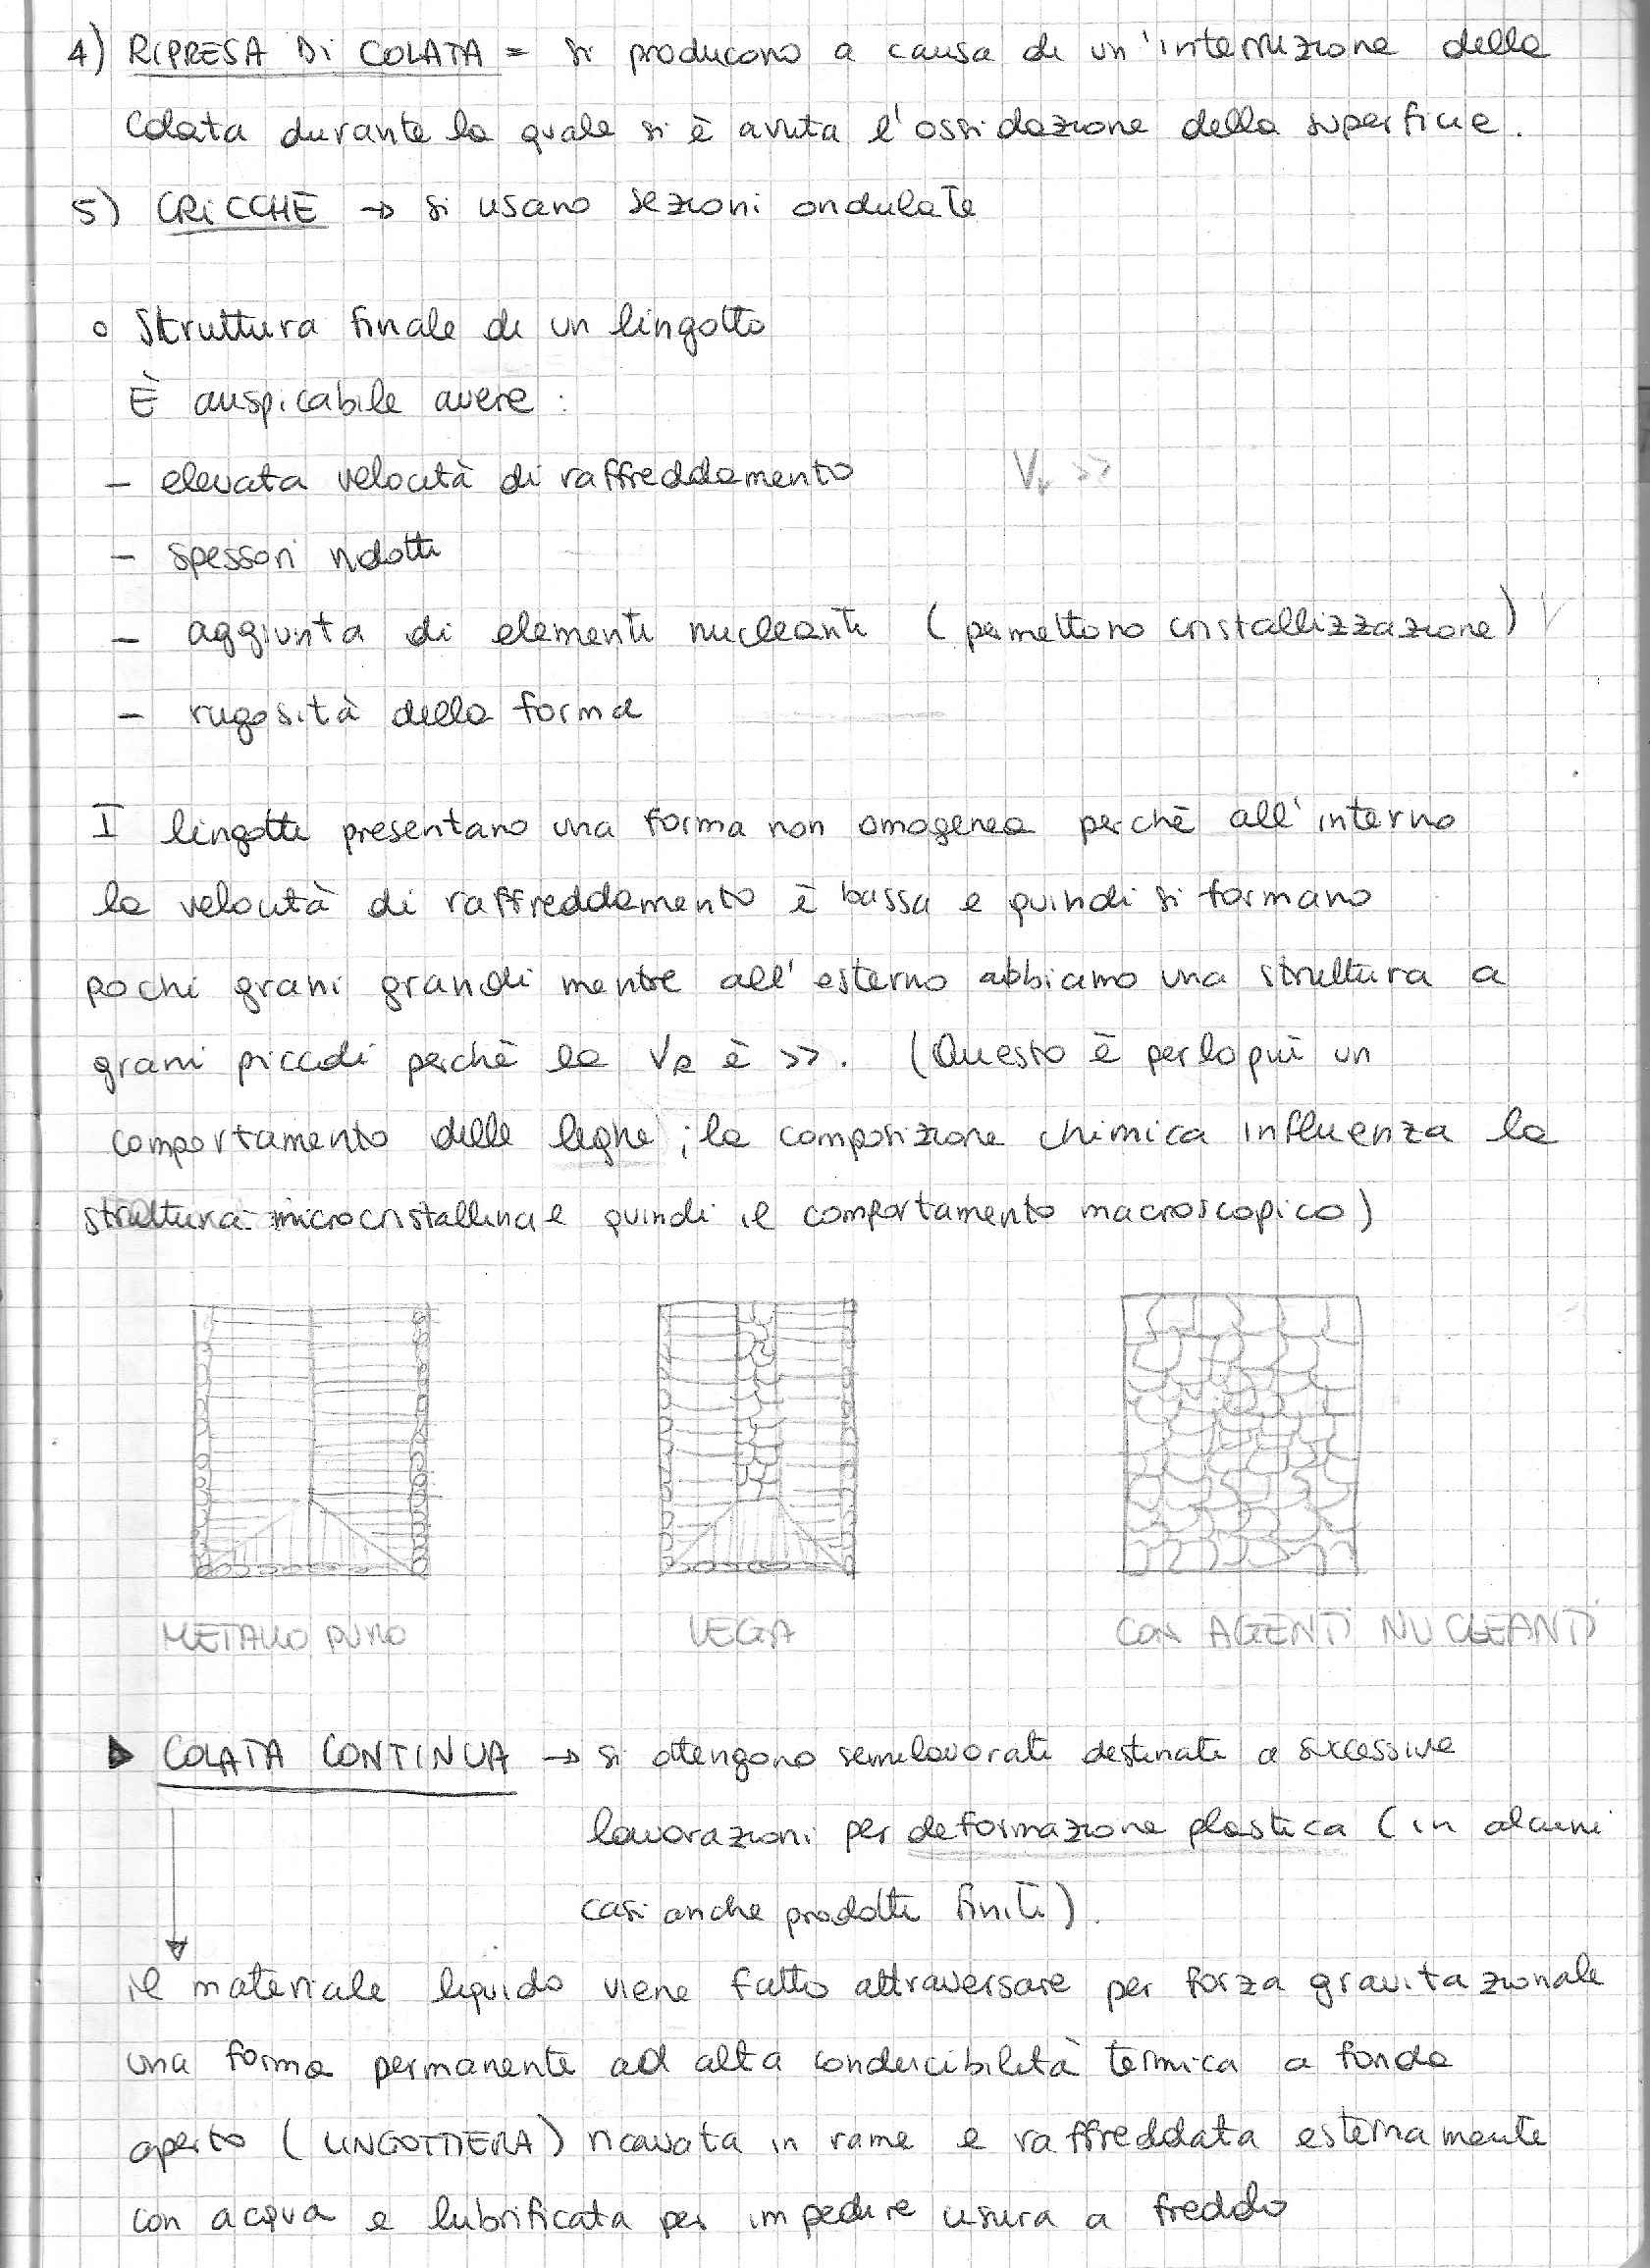 4) RIPRESA DI COLATA = si producono a causa di un'interruzione della
colata durante la quale si è avuta l'ossidazione della superficie.
5) CRICCHE → si usano sezioni ondulate
o Struttura finale di un lingotto
È auspicabile avere :
- elevata velocità di raffreddamento V_r >>
- spessori ridotti
- aggiunta di elementi nucleanti (permettono cristallizzazione)
- rugosità della forma
I lingotti presentano una forma non omogenea perchè all'interno
la velocità di raffreddamento è bassa e quindi si formano
pochi grani grandi mentre all'esterno abbiamo una struttura a
grani piccoli perchè la V_R è >>. (Questo è perlopiù un
comportamento delle leghe ; la composizione chimica influenza la
struttura microcristallina e quindi il comportamento macroscopico)
METALLO PURO LEGA CON AGENTI NUCLEANTI
▶ COLATA CONTINUA → si ottengono semilavorati destinati a successive
lavorazioni per deformazione plastica (in alcuni
casi anche prodotti finiti).
il materiale liquido viene fatto attraversare per forza gravitazionale
una forma permanente ad alta conducibilità termica a fondo
aperto (LINGOTTIERA) ricavata in rame e raffreddata esternamente
con acqua e lubrificata per impedire usura a freddo